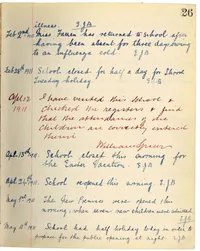 26
illness. E.J.B
Feb 22nd 1911 Miss Fasser has returned to School after
having been absent for three days owing
to an influenza cold. E.J.B
Feb 28th 1911 School closed for half a day for Shrove
Tuesday holiday E.J.B
Apl. 12 I have visited this School &
1911 checked the registers & find
that the attendances of the
children are correctly entered
therein
William Green
Apl. 13th 1911. School closed this morning for
the Easter Vacation. E.J.B
Apl. 24th 1911. School reopened this morning. E.J.B
May 1st 1911. The New Premises were opened this
morning, when seven new children were admitted.
E.J.B
May 11th 1911 School had half holiday today in order to
prepare for the public opening at night. E.J.B